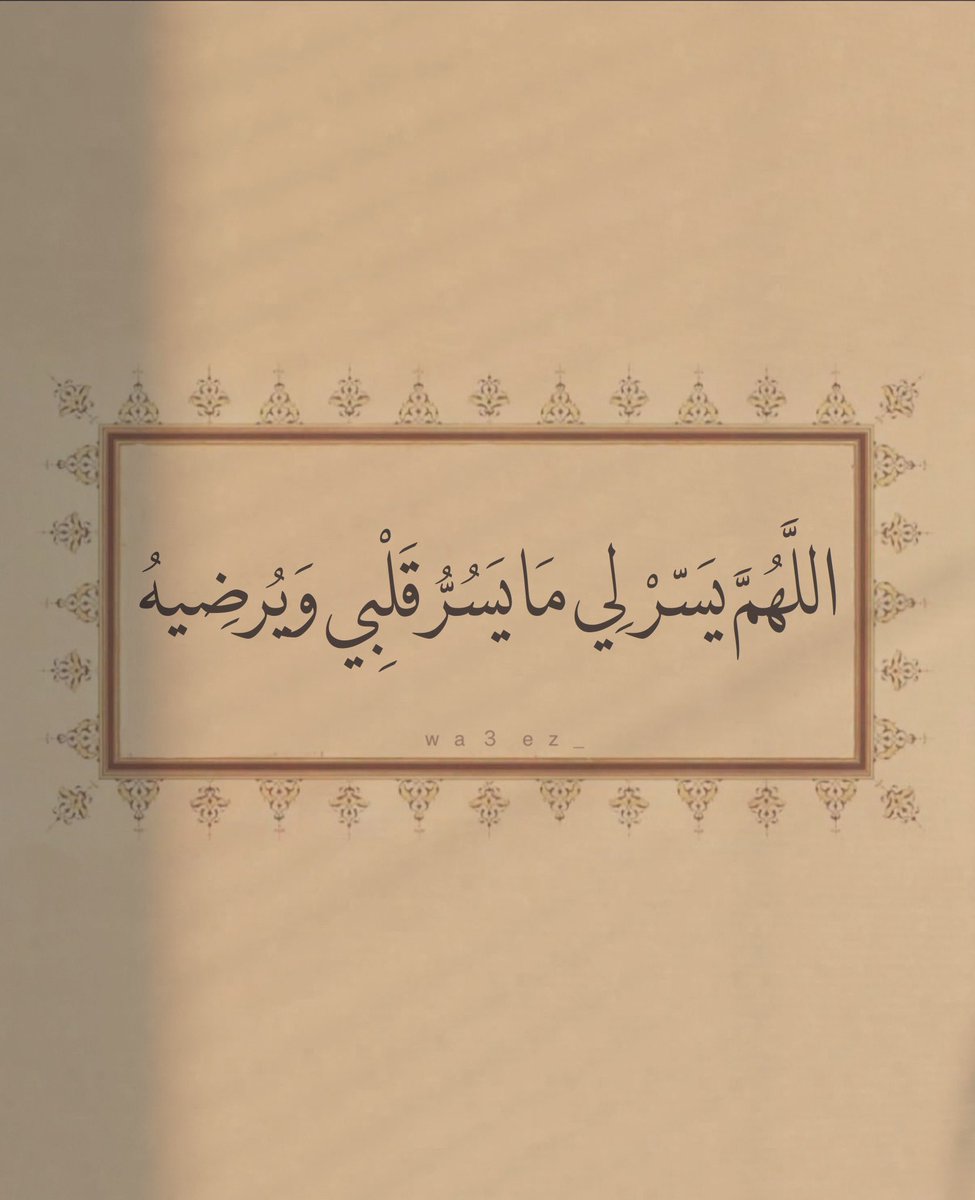 اللَّهُمَّ يَسّرْ لِي مَا يَسُرُّ قَلْبِي وَيُرضِيهُ
wa3 ez_